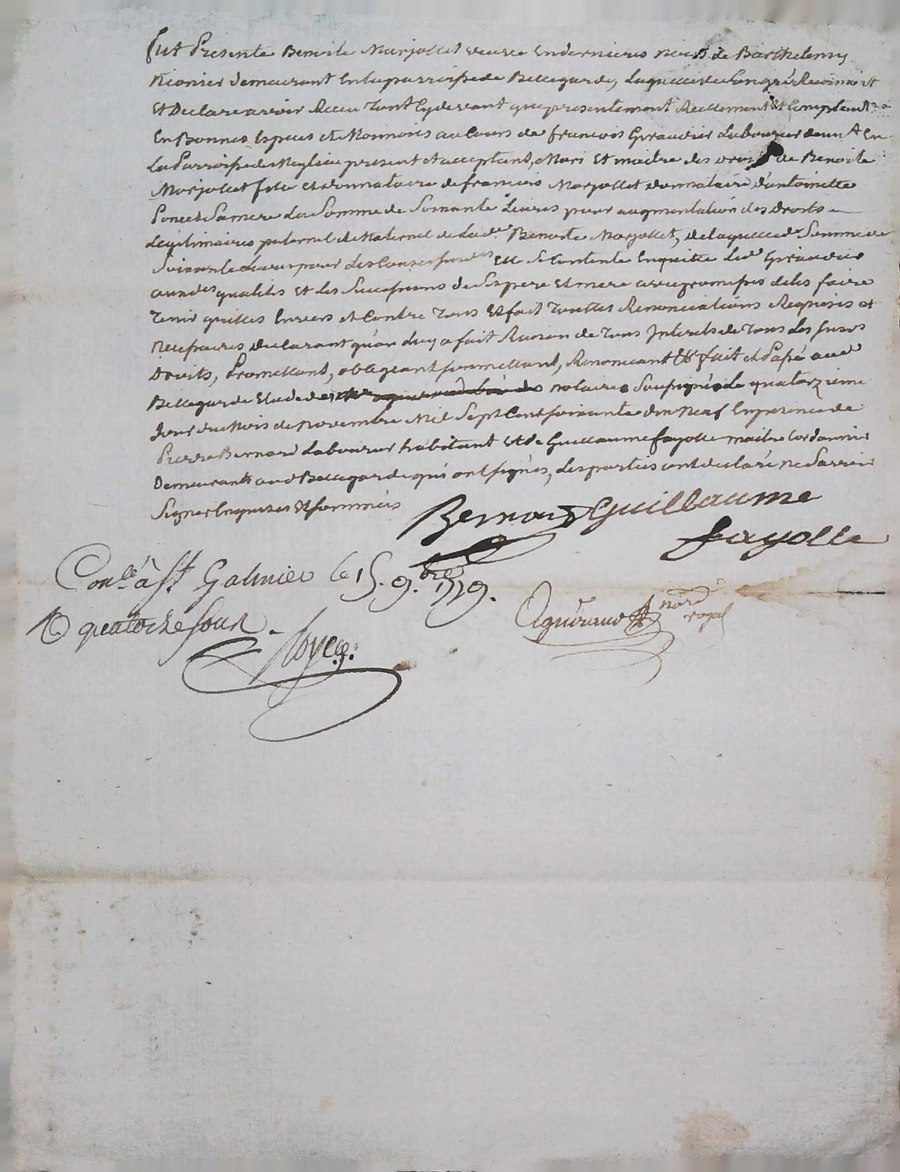 fut Presente Benoite Marjollet veuve En dernieres Noces de Barthelemy
demeurant En la parroisse de Bellegarde, Laquelle de son gré Reconnoit
Et Declare avoir Receu Tant Cy devant que presentement Reellement Et Comptant
En Bonnes Especes et Monnoies au Cours de francois Giraudier Laboureur demt En
La Parroisse de present et acceptant, Mari Et maitre des droits de Benoite
Marjollet fille et donnataire de francois Marjollet donnataire d'antoinette
Poncet Sa mere La Somme de Soixante Livres pour augmentation des Droits
Legitimaires paternel et Maternel de Lade Benoite Marjollet, de laquelle de Somme de
Soixante Livres pour Les Causes susdes Elle Se Contente En quitte Led Giraudier
auxdes qualités Et Les Successions de Ses pere Et mere avec promesse de les faire
Tenir quittes Envers et Contre Tous Et fait Toutes Renonciations Requises et
Necessaires declarant qu'on luy a fait Raison de Tous Interets de Tous Les Susds
Droits, Promettant, obligeant, soumettant, Renonceant &c fait et Passé aud
Bellegarde Etude de notaire Soussigné Le quatorzieme
Jour du Mois de Novembre Mil Sept Cent soixante dix Neuf En presence de
Pierre Bernard Laboureur habitant Et de Guillaume fayolle maitre Cordonnier
Demeurants aud Bellegarde qui ont signés, Les parties ont declaré ne Savoir
Signer Enquises Et sommées
Bernard Guillaume
fayolle
Conlé à St Galmier le 15. 9.bre 1779.
R quatorze sous
nore
royal